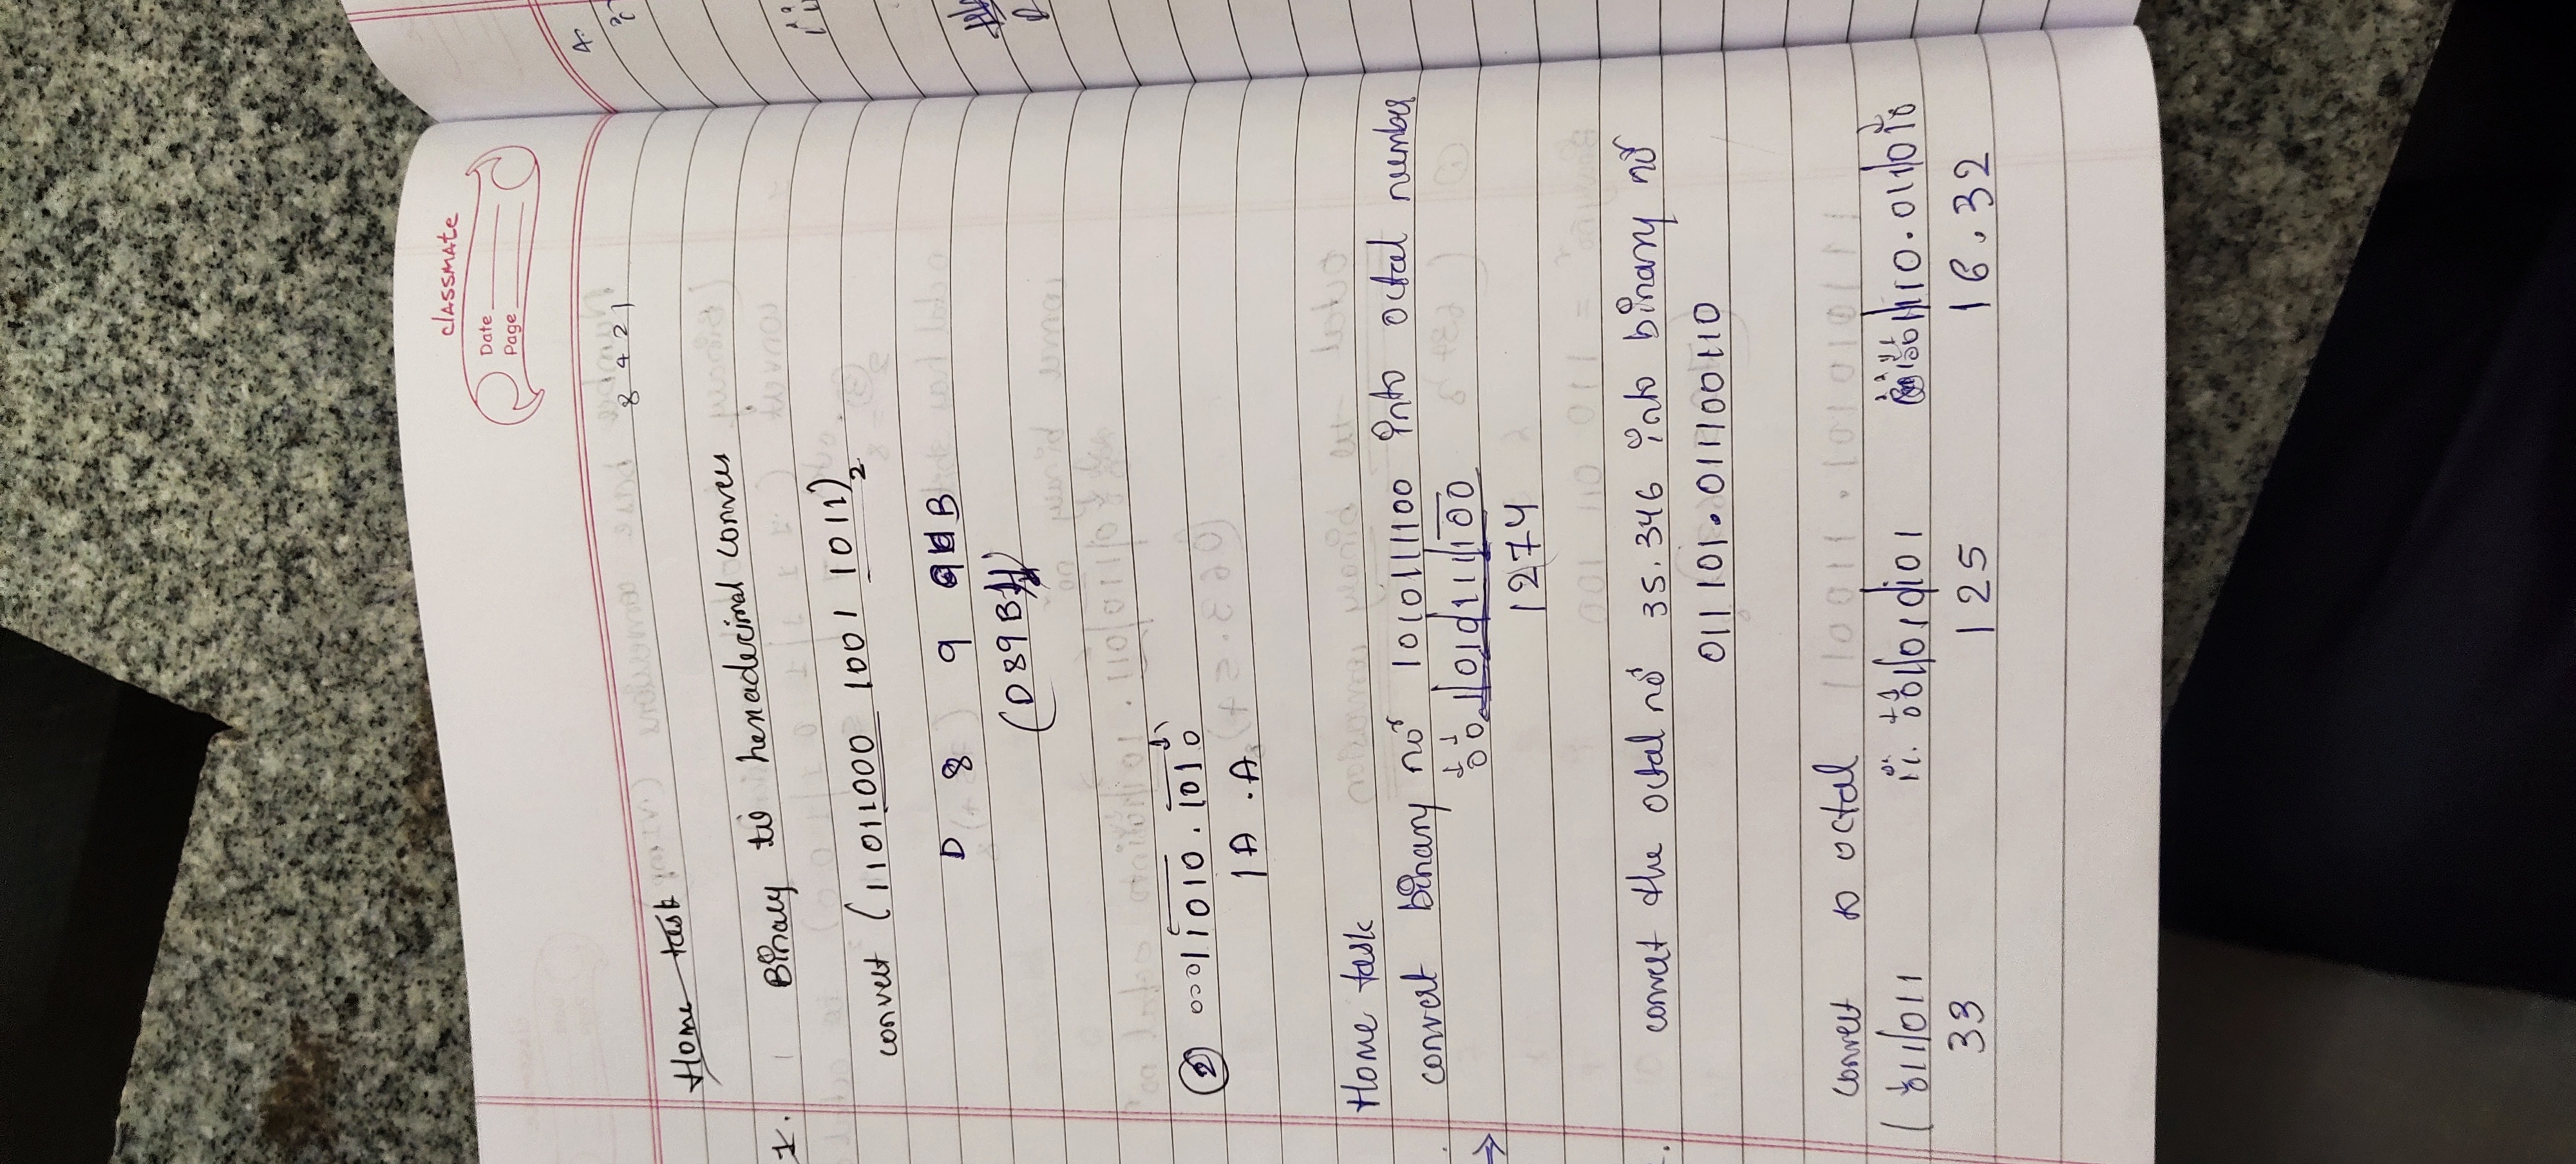 classmate
Date
Page
8 4 2 1
Home task
1. Binary to hexadecimal convers
convert (11011000 1001 1011)2
D 8 9 B
(D89B)
② 00011010.1010
1A.A
Home task
convert binary no 1010111100 into octal number
→ 001|010|111|100
1274
convert the octal no 35.346 into binary no
011101.011100110
convert to octal
( 011/011 ii. 001/010/101 001/110.011/010
33 125 16.32